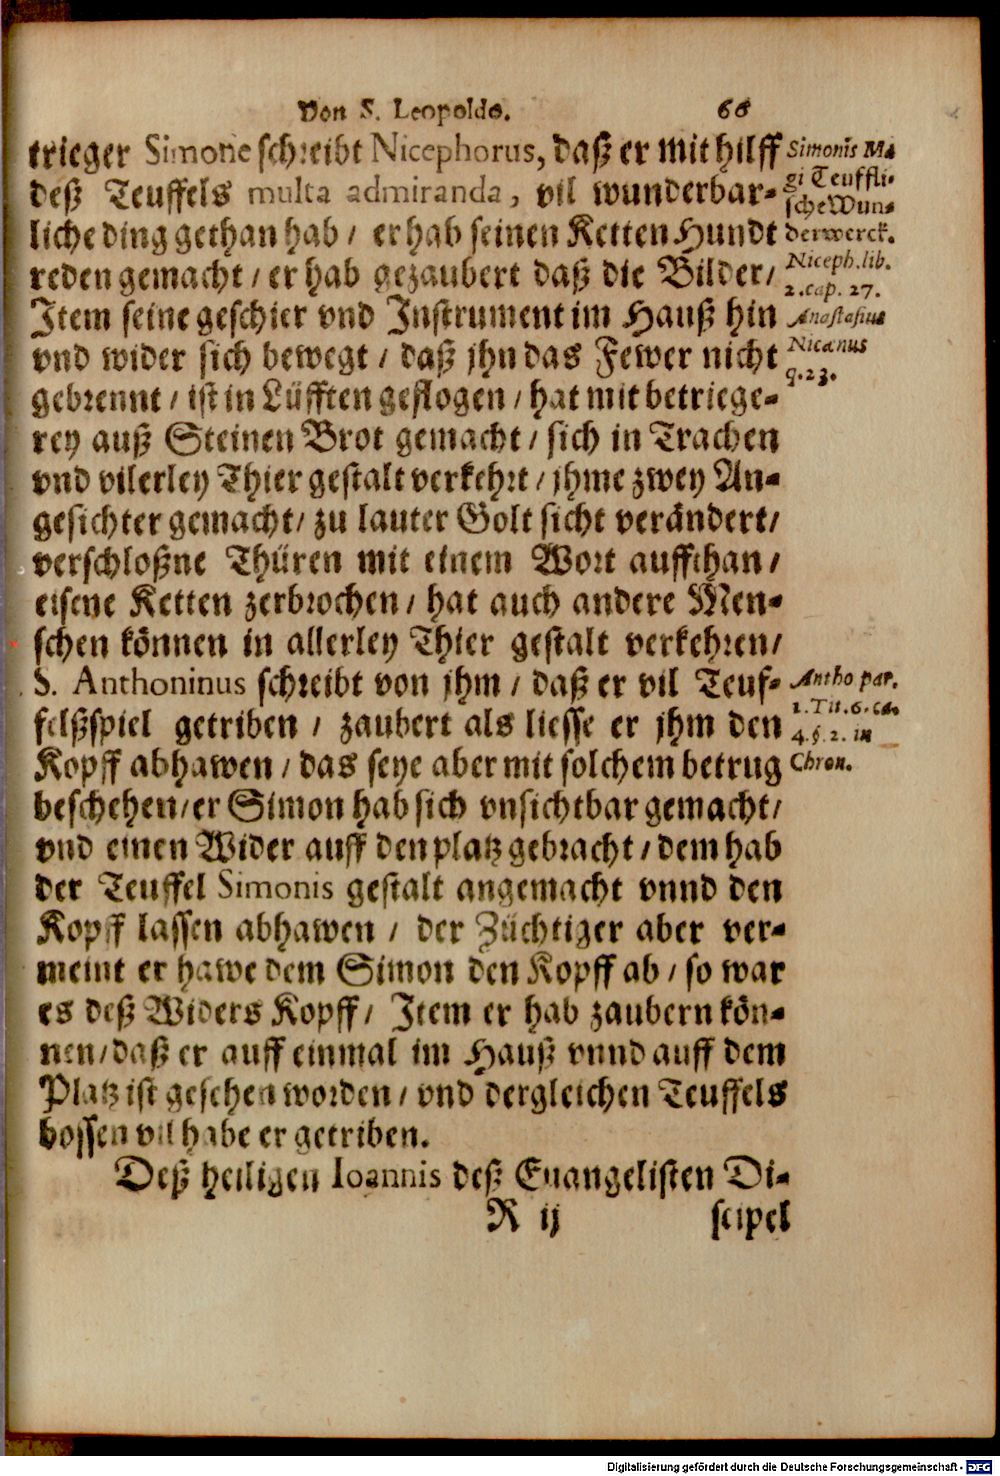 Von S. Leopoldo. 66
trieger Simone schreibt Nicephorus, daß er mit hilff
deß Teuffels multa admiranda, vil wunderbar-
liche ding gethan hab / er hab seinen Ketten Hundt
reden gemacht / er hab gezaubert daß die Bilder /
Item seine geschier vnd Instrument im Hauß hin
vnd wider sich bewegt / daß jhn das Fewer nicht
gebrennt / ist in Lüfften geflogen / hat mit betriege-
rey auß Steinen Brot gemacht / sich in Trachen
vnd vilerley Thier gestalt verkehrt / jhme zwey An-
gesichter gemacht / zu lauter Golt sich verändert /
verschloßne Thüren mit einem Wort auffthan /
eisene Ketten zerbrochen / hat auch andere Men-
schen können in allerley Thier gestalt verkehren /
S. Anthoninus schreibt von jhm / daß er vil Teuf-
felßspiel getriben / zaubert als liesse er jhm den
Kopff abhawen / das seye aber mit solchem betrug
beschehen / er Simon hab sich vnsichtbar gemacht /
vnd einen Wider auff den platz gebracht / dem hab
der Teuffel Simonis gestalt angemacht vnnd den
Kopff lassen abhawen / der Züchtiger aber ver-
meint er hawe dem Simon den Kopff ab / so war
es deß Widers Kopff / Item er hab zaubern kön-
nen / daß er auff einmal im Hauß vnnd auff dem
Platz ist gesehen worden / vnd dergleichen Teuffels
bossen vil habe er getriben.
Deß heiligen Ioannis deß Euangelisten Di-
R ij scipel
Simonis Ma
gi Teuffli-
sche Wun-
derwerck.
Niceph. lib.
2. cap. 27.
Anastasius
Nicænus
q. 23.
Antho par.
1. Tit. 6. ca.
4. §. 2. in
Chron.
Digitalisierung gefördert durch die Deutsche Forschungsgemeinschaft - DFG